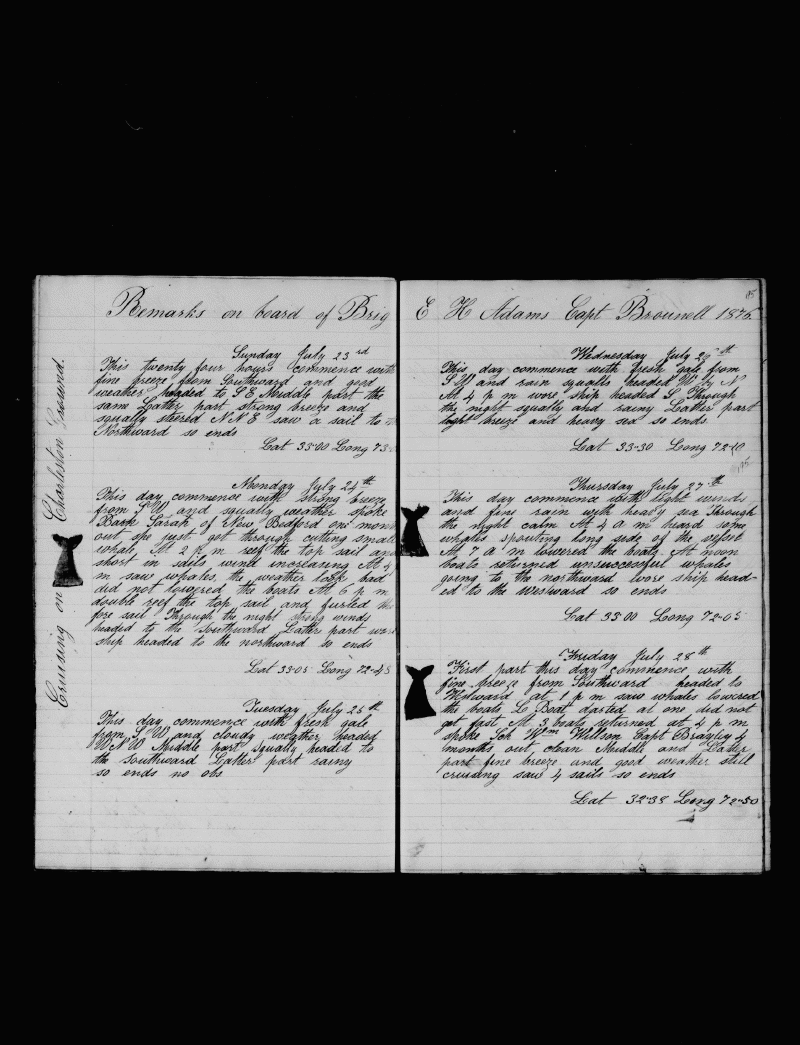 Remarks on board of Brig
Cruising on Charleston Ground.
Sunday July 23rd
This twenty four hours commence with
fine breeze from Southward and good
weather headed to S E Middle part the
same Latter part strong breeze and
squally steered N N E saw a sail to the
Northward so ends
Lat 33-00 Long 73-
Monday July 24th
This day commence with strong breeze
from S W and squally weather spoke
Bark Sarah of New Bedford one month
out she just got through cutting small
whale, At 2 p m reef the top sail and
short in sails wind increasing At 4
m saw whales, the weather look bad
did not lowered the boats At 6 p m
double reef the top sail and furled the
fore sail Through the night strong winds
headid to the Southward Latter part wore
ship headed to the northward so ends
Lat 33-05 Long 72-45
Tuesday July 25th
This day commence with fresh gale
from S W and cloudy weather, headed
W N W Middle part squally headid to
the Southward Latter part rainy
so ends no obs
E H Adams Capt Brownell 1876
Wednesday July 26th
This day commence with fresh gale from
S W and rain squalls headed W by N
At 4 p m wore ship headed S Through
the night squally and rainy Latter part
light breeze and heavy sea so ends
Lat 33-30 Long 72-10
Thursday July 27th
This day commence with light winds
and fine rain with heavy sea Through
the night calm At 4 a m heard some
whales spouting long side of the vessel
At 7 a m lowered the boats At noon
boats returned unsuccessful whales
going to the northward wore ship head-
ed to the Westward so ends
Lat 33 00 Long 72-05
Friday July 28th
First part this day commence with
fine breeze from Southward headed to
Westward at 1 p m saw whales lowered
the boats L Boat darted at one did not
get fast At 3 boats returned at 4 p m
spoke Sch Wm Willson Capt Brayley 4
months out clean Middle and Latter
part fine breeze and good weather still
cruising saw 4 sails so ends
Lat 32-38 Long 72-50